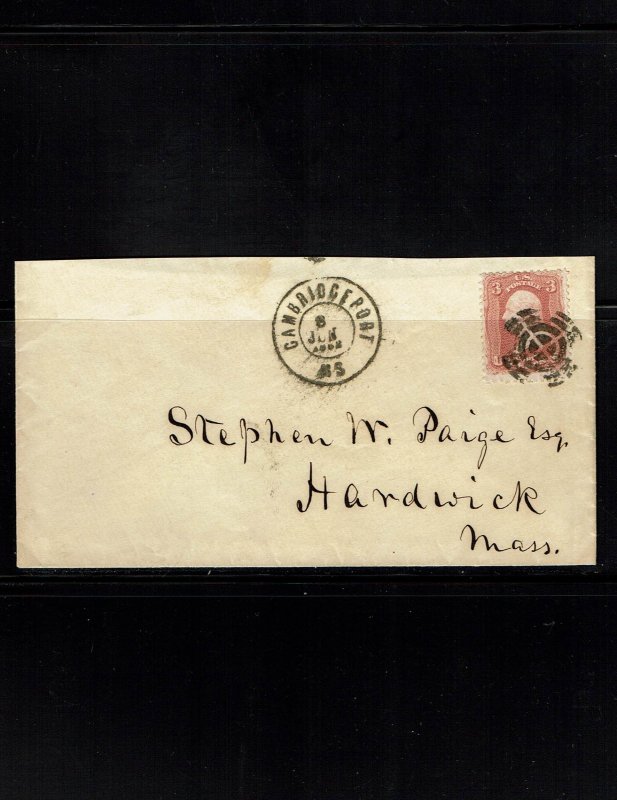 CAMBRIDGEPORT
8
JUN
1862
MS
U.S.
POSTAGE
3 3
Stephen W. Paige Esq.
Hardwick
Mass.